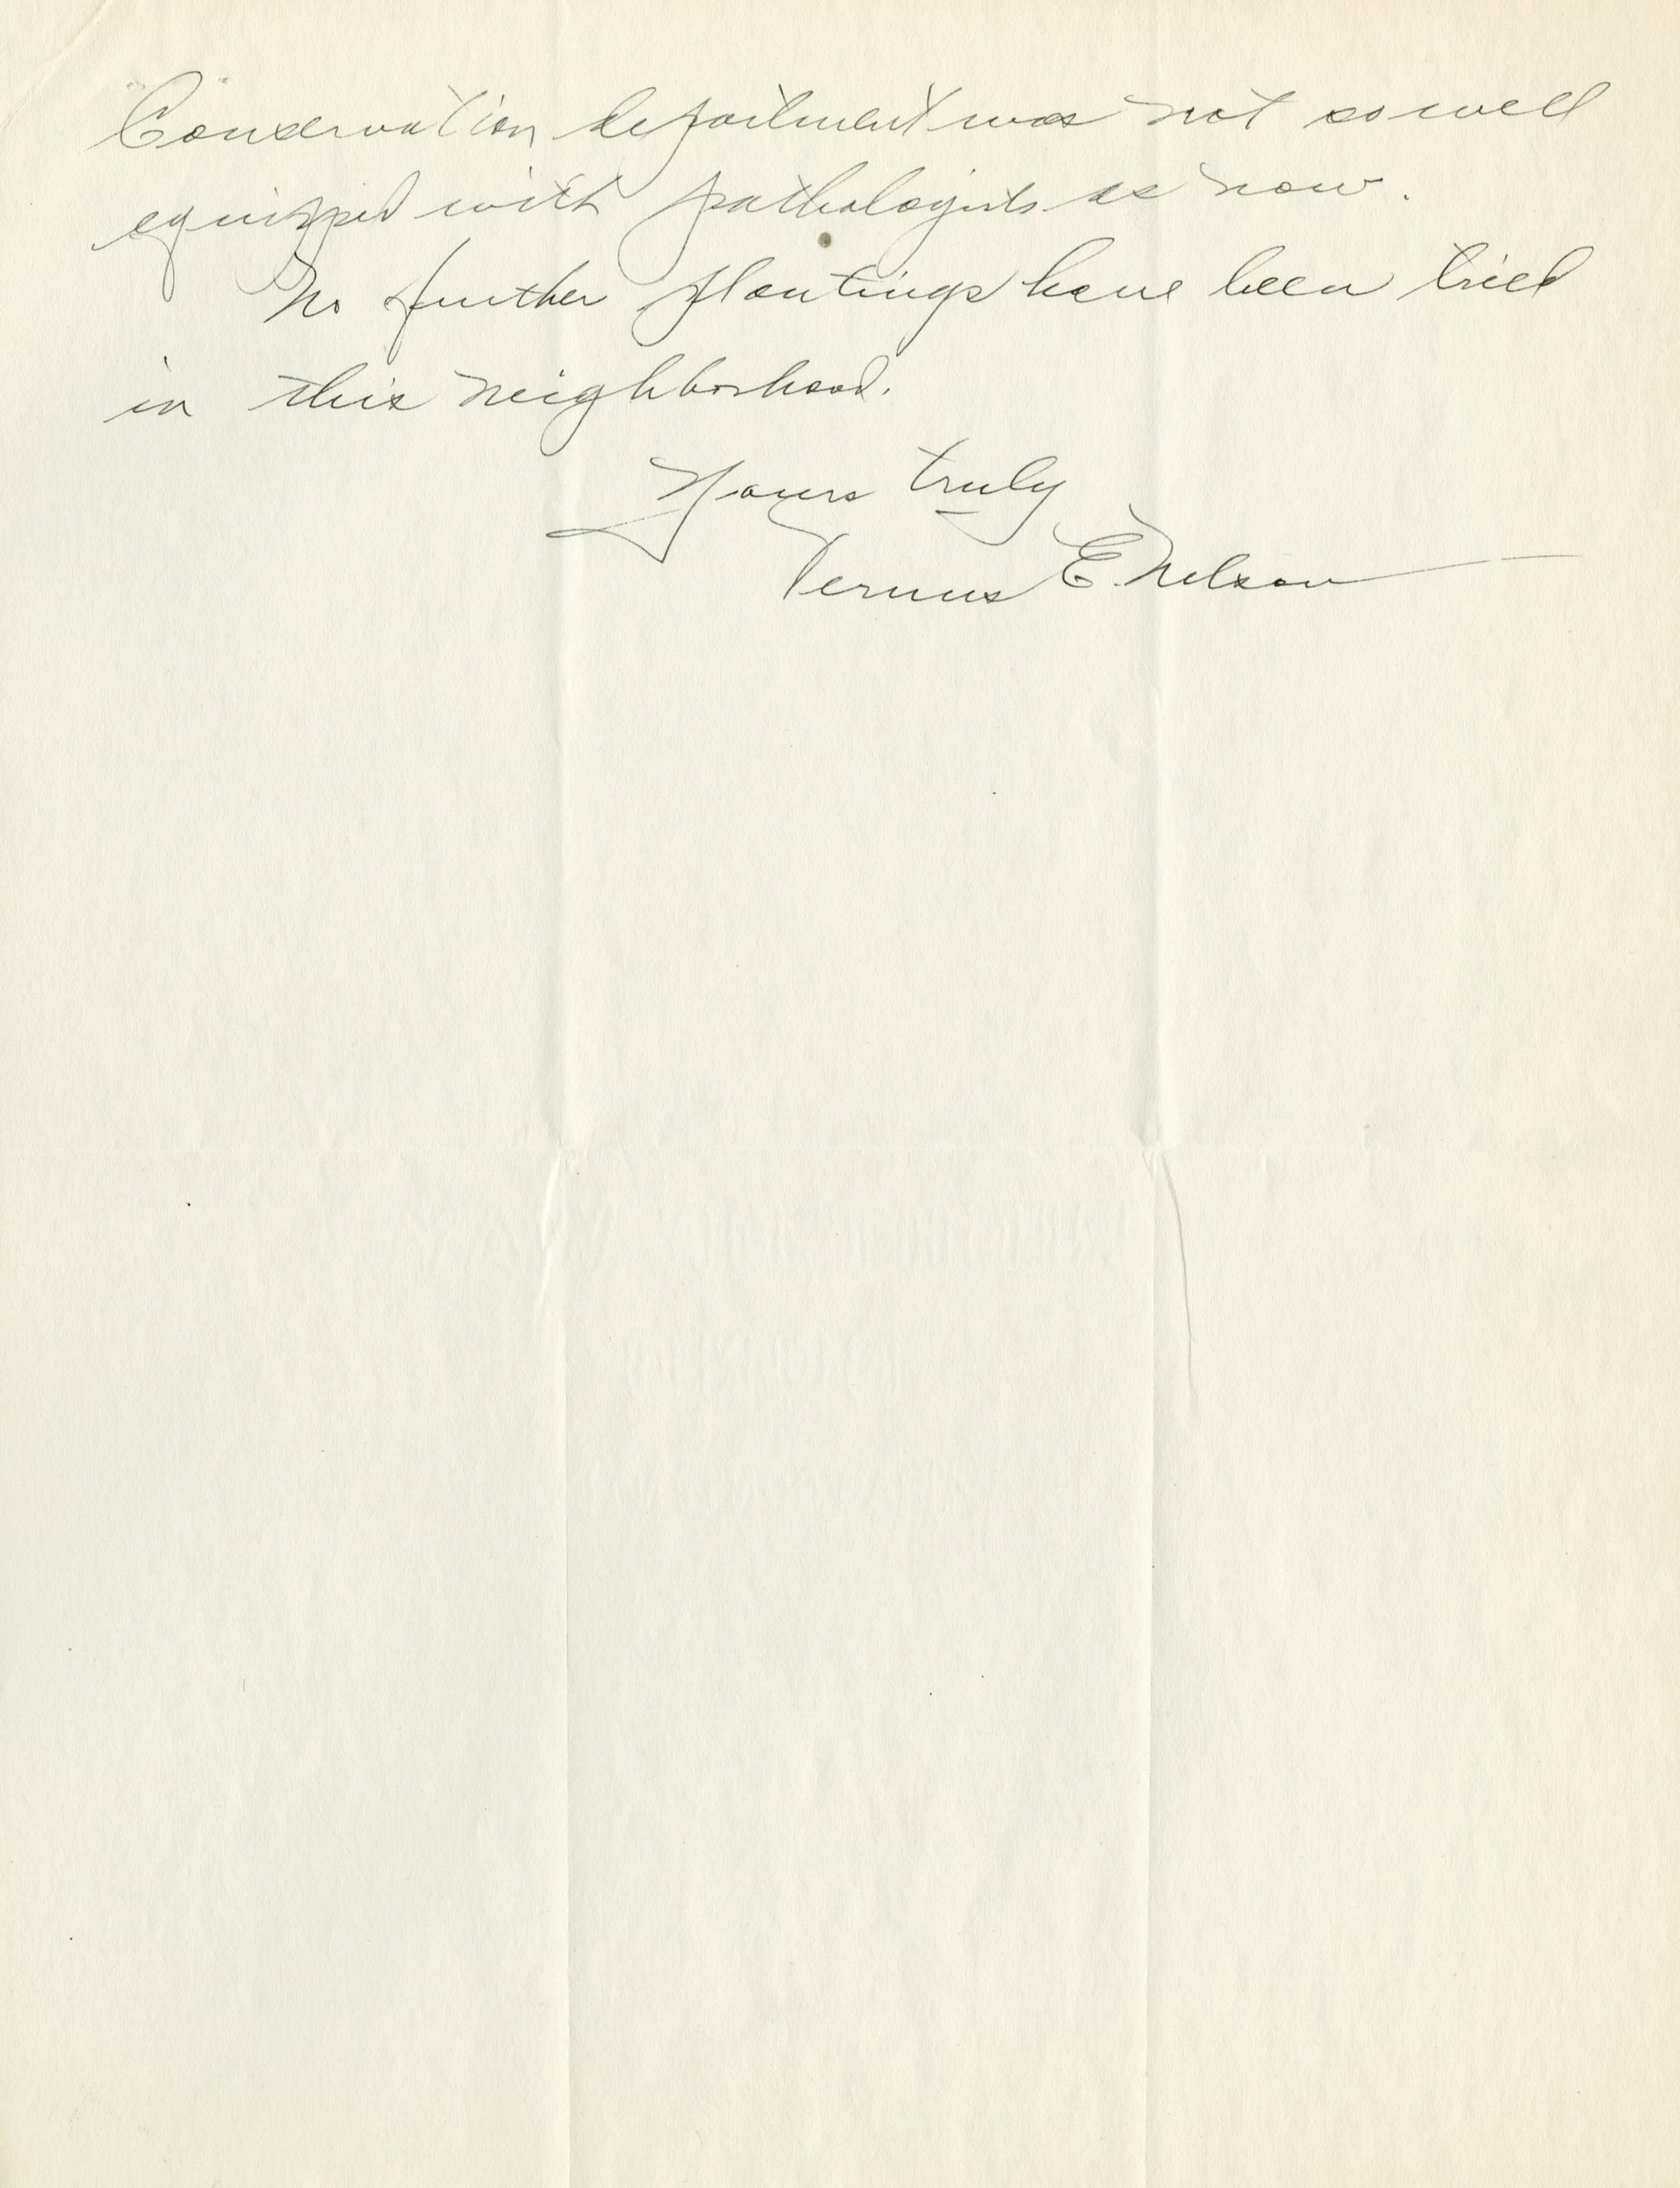 Conservation department was not so well
equipped with pathologists as now.
No further plantings have been tried
in this neighborhood.
Yours truly
E. Nelson